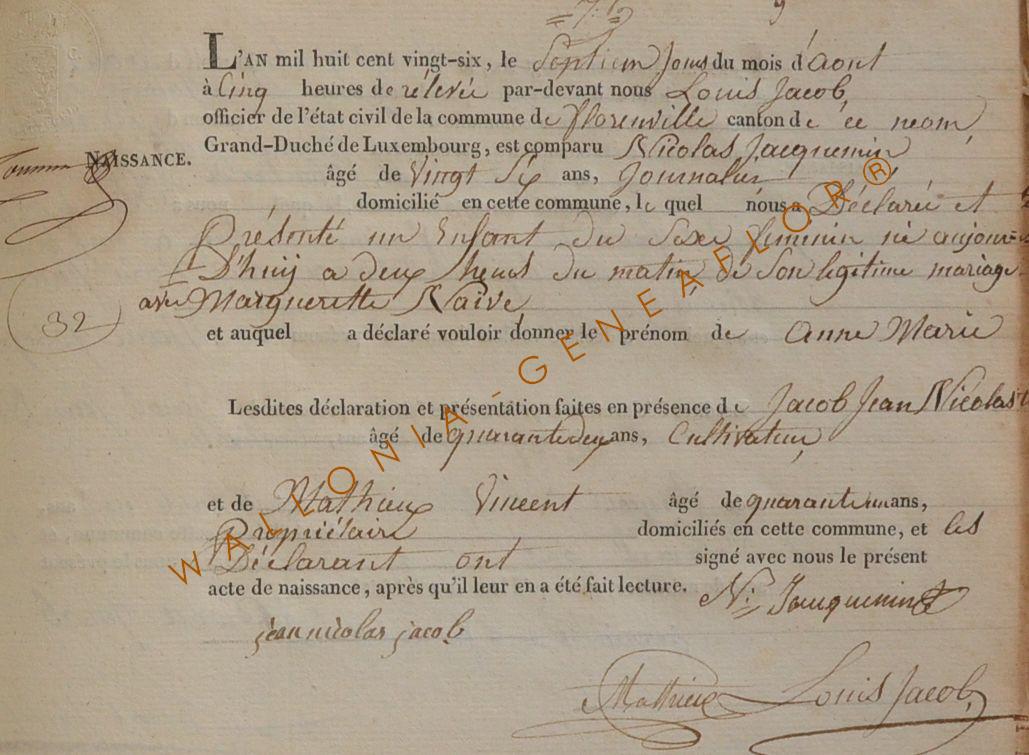 L'AN mil huit cent vingt-six, le Septiem Jour du mois d'aout
à Cinq heures de rélevée par-devant nous Louis Jacob,
officier de l'état civil de la commune de florenville canton de ce nom,
NAISSANCE. Grand-Duché de Luxembourg, est comparu Nicolas Jacquemin,
âgé de Vingt Six ans, Journalier
domicilié en cette commune, le quel nous a Déclaré et
Présenté un Enfant du Sexe feminin né aujour=
D'huy a deux heures du matin, de Son legitime mariage
avec Marguerette Naive,
32
et auquel a déclaré vouloir donner le prénom de Anne Marie
Lesdites déclaration et présentation faites en présence de Jacob Jean Nicolas
âgé de quarante deux ans, Cultivateur,
et de Mathieu Vincent âgé de quarante un ans,
Propriétaire domiciliés en cette commune, et les
Déclarant ont signé avec nous le présent
acte de naissance, après qu'il leur en a été fait lecture.
N: Jacquemin
jean nicolas jacob
Mathieu Louis Jacob,
WALLONIA-GENEAFLOR®